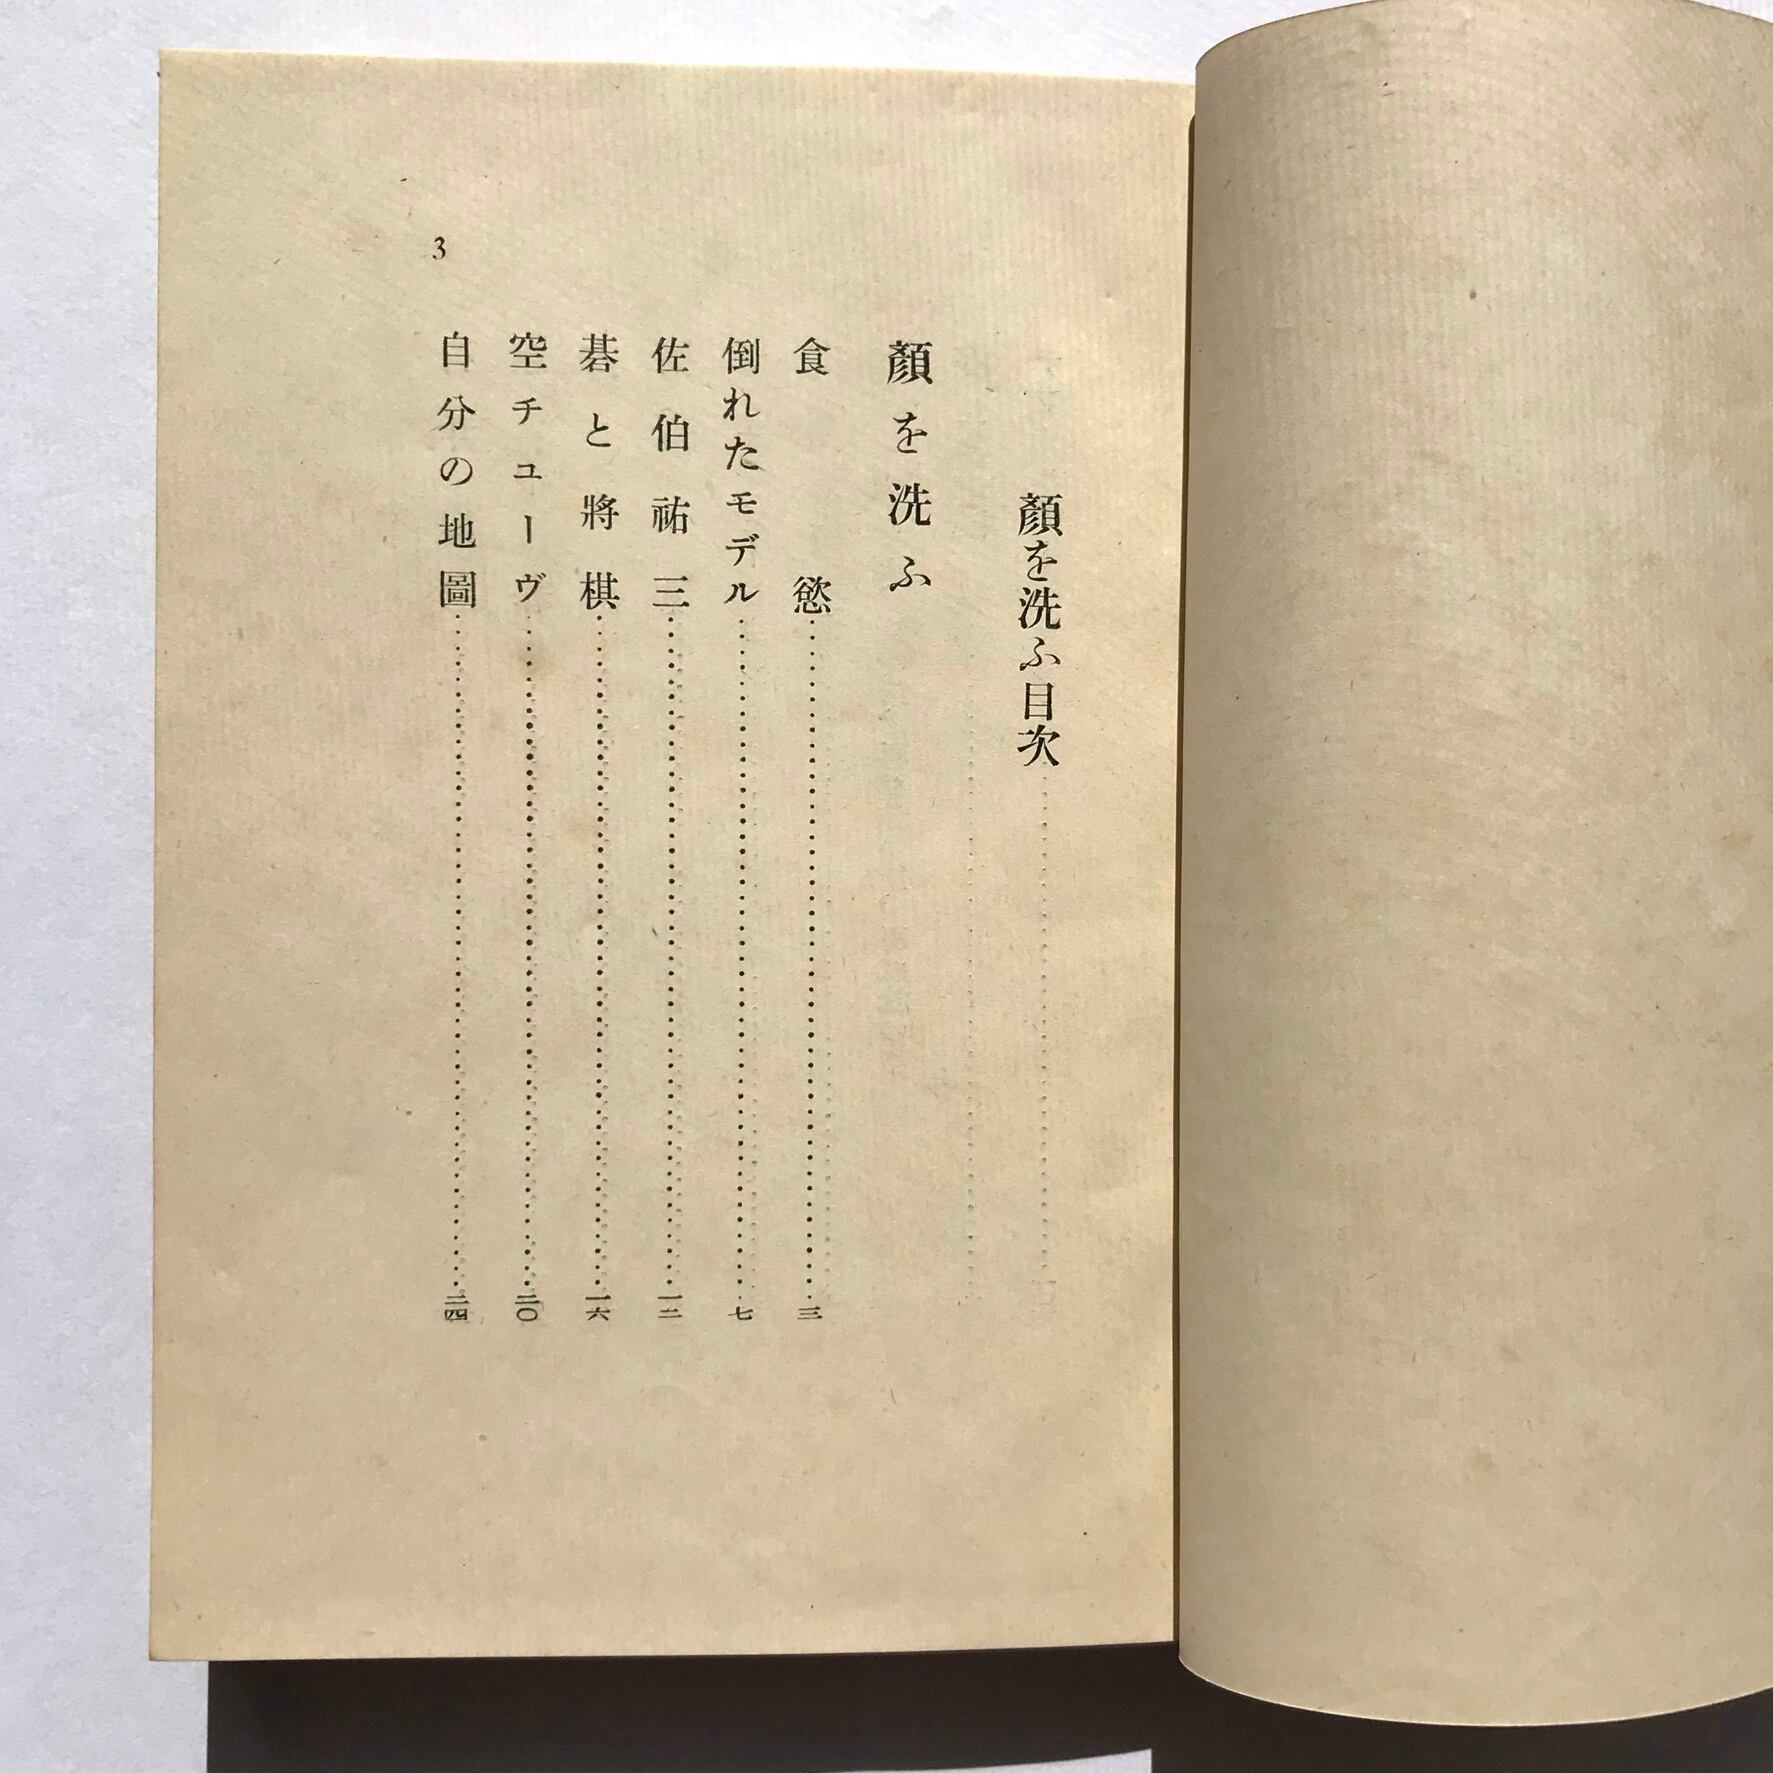 顏を洗ふ目次
顏を洗ふ
食慾……三
倒れたモデル……七
佐伯祐三……一二
碁と將棋……一六
空チューヴ……二〇
自分の地圖……二四
3